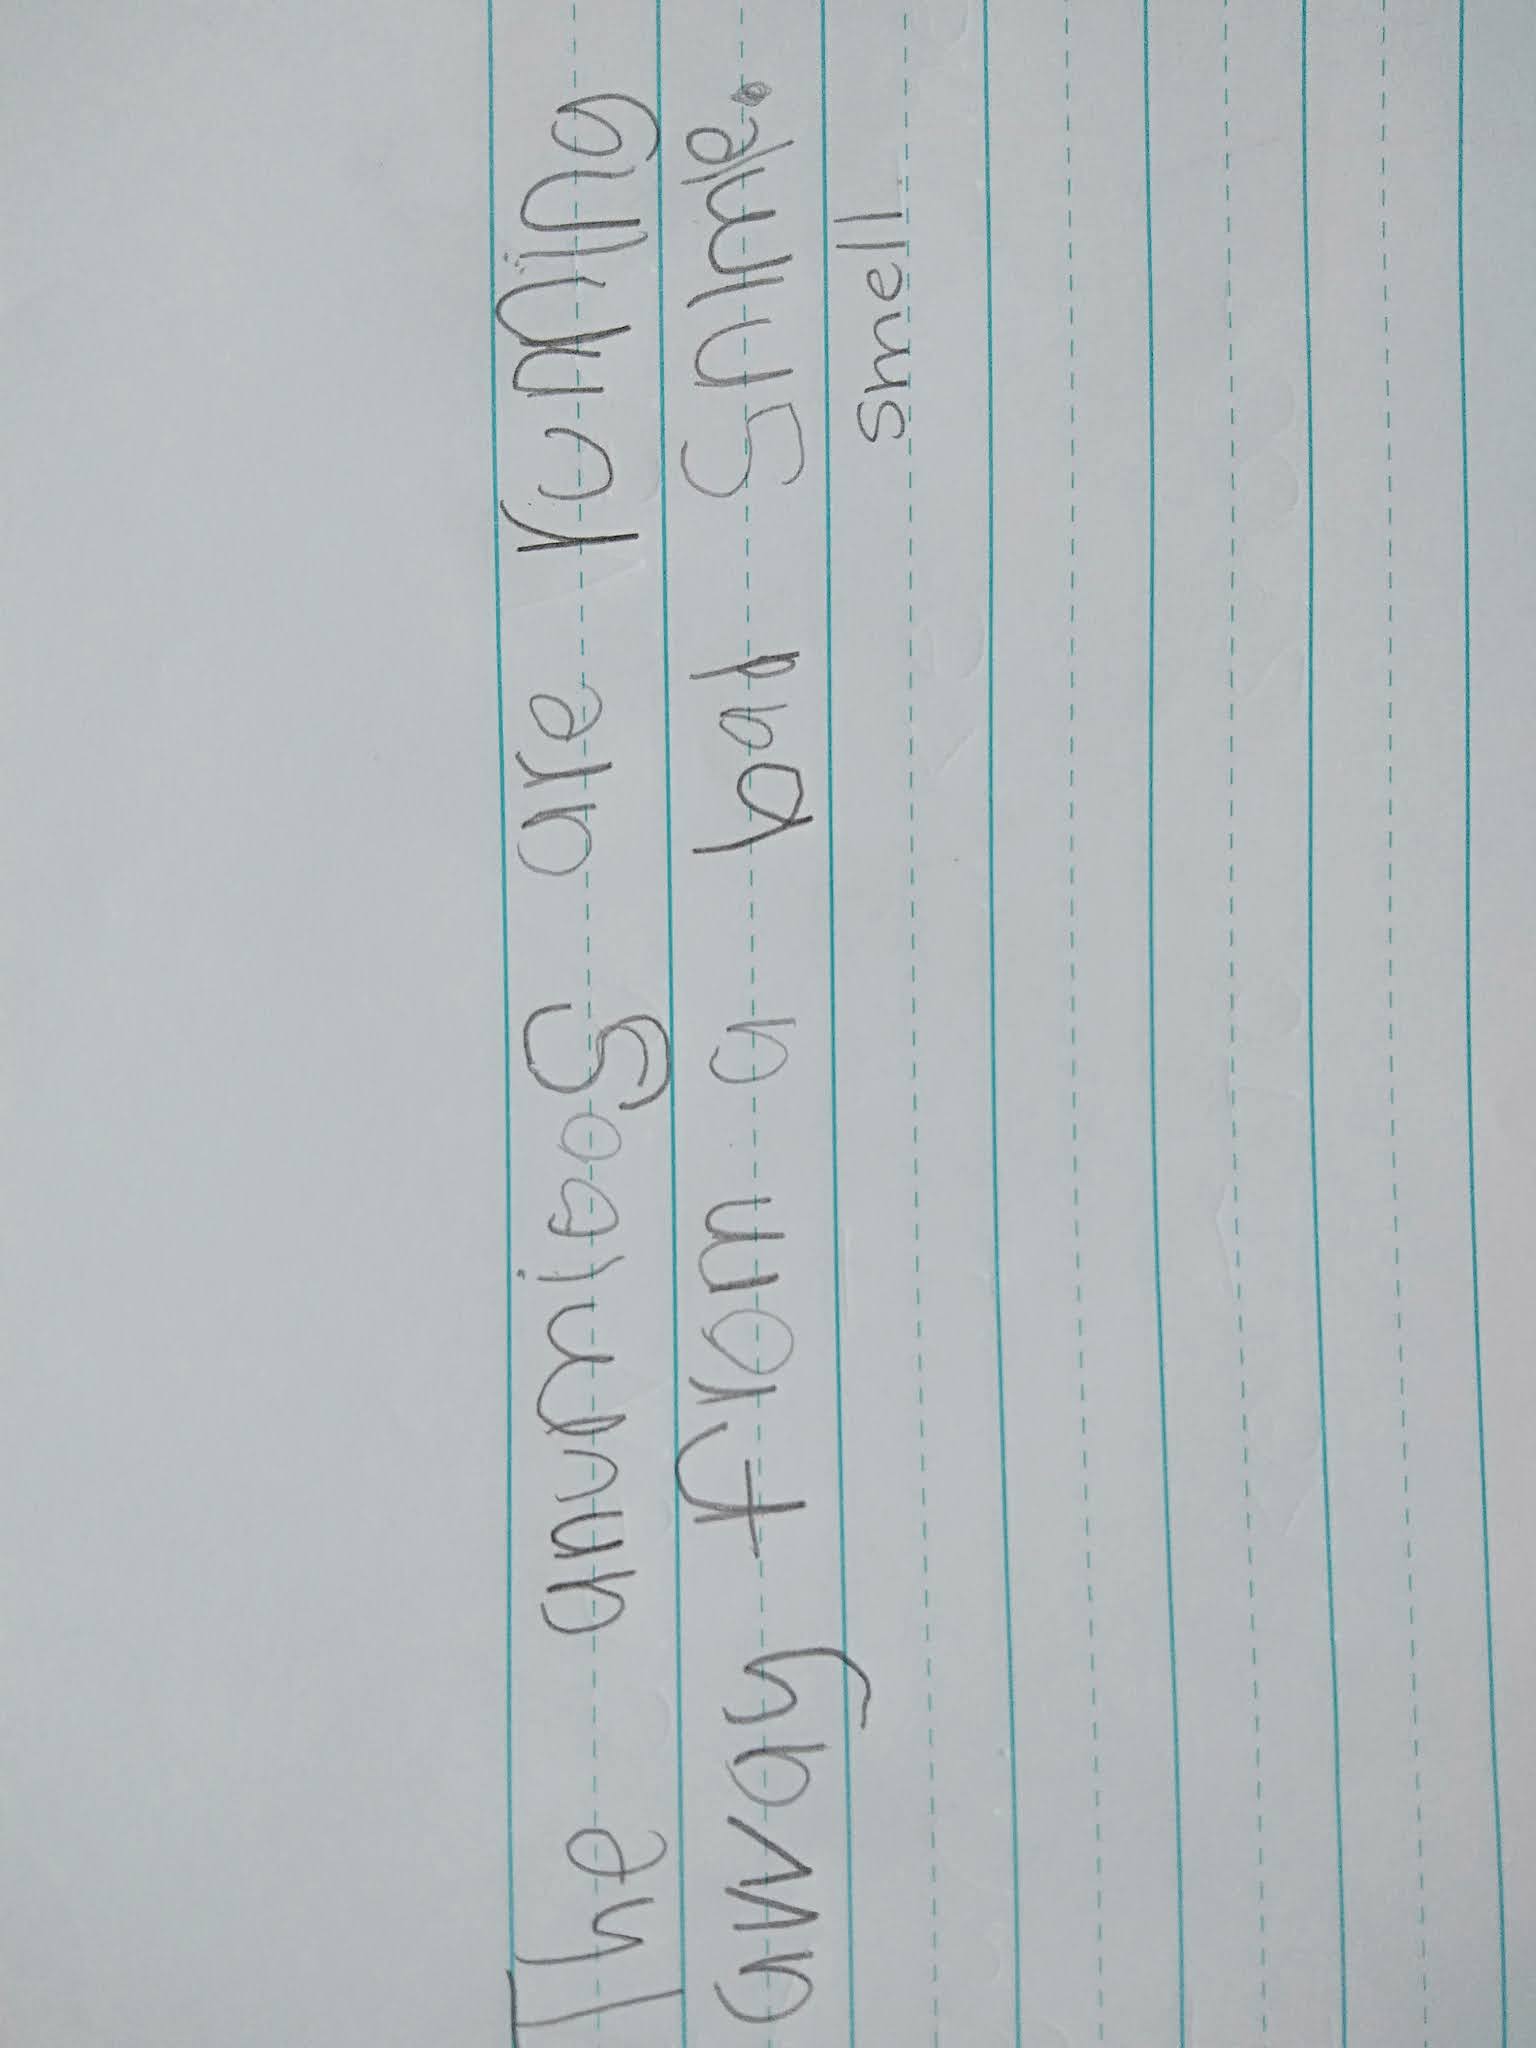 The anumiaos are ruming
away from a bad snumle.
smell